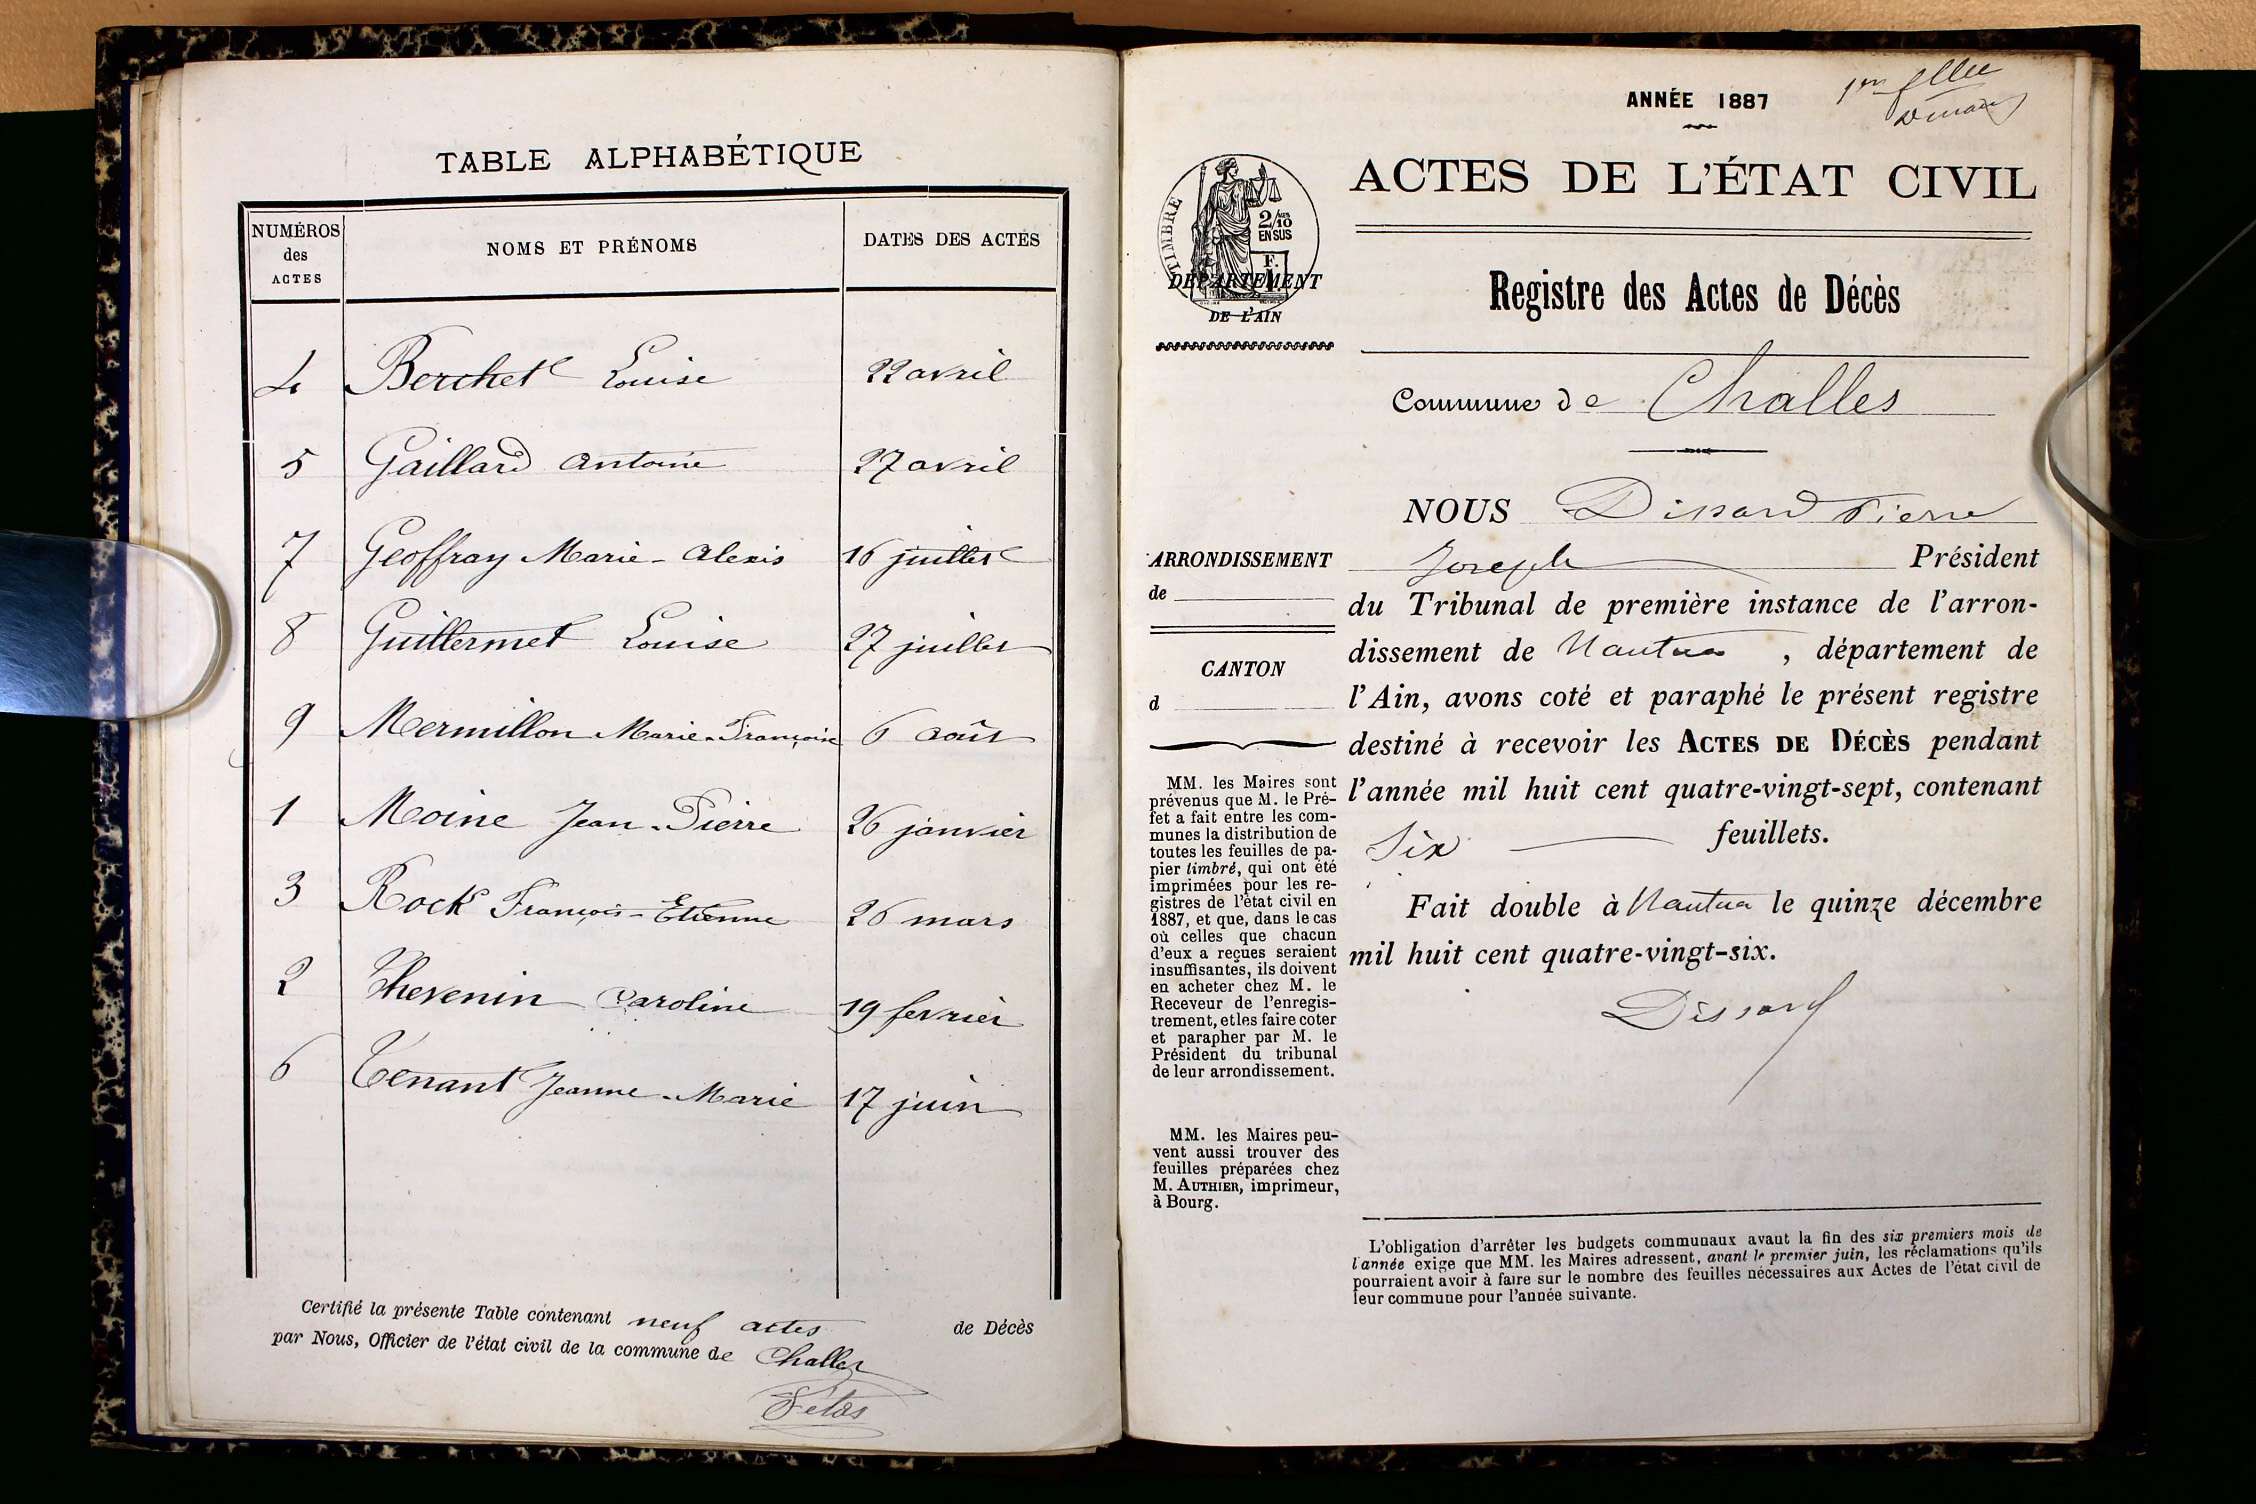 TABLE ALPHABÉTIQUE
NUMÉROS des ACTES NOMS ET PRÉNOMS DATES DES ACTES
4 Berchet Louise 22 avril
5 Gaillard Antoine 27 avril
7 Geoffray Marie-Alexis 16 juillet
8 Guillermet Louise 27 juillet
9 Mermillon Marie-Françoise 6 août
1 Moine Jean-Pierre 26 janvier
3 Rock François-Etienne 26 mars
2 Thevenin Caroline 19 fevrier
6 Tenant Jeanne-Marie 17 juin
Certifié la présente Table contenant neuf actes de Décès
par Nous, Officier de l'état civil de la commune de Challes
ANNÉE 1887
ACTES DE L'ÉTAT CIVIL
TIMBRE
2/10
EN SUS
F.
DÉPARTEMENT
DE L'AIN
Registre des Actes de Décès
Commune de Challes
NOUS Dissard Pierre
Joseph Président
du Tribunal de première instance de l'arron-
dissement de Nantua, département de
l'Ain, avons coté et paraphé le présent registre
destiné à recevoir les ACTES DE DÉCÈS pendant
l'année mil huit cent quatre-vingt-sept, contenant
Six feuillets.
Fait double à Nantua le quinze décembre
mil huit cent quatre-vingt-six.
Dissard
ARRONDISSEMENT
de
CANTON
d
MM. les Maires sont
prévenus que M. le Pré-
fet a fait entre les com-
munes la distribution de
toutes les feuilles de pa-
pier timbré, qui ont été
imprimées pour les re-
gistres de l'état civil en
1887, et que, dans le cas
où celles que chacun
d'eux a reçues seraient
insuffisantes, ils doivent
en acheter chez M. le
Receveur de l'enregis-
trement, et les faire coter
et parapher par M. le
Président du tribunal
de leur arrondissement.
MM. les Maires peu-
vent aussi trouver des
feuilles préparées chez
M. AUTHIER, imprimeur,
à Bourg.
L'obligation d'arrêter les budgets communaux avant la fin des six premiers mois de
l'année exige que MM. les Maires adressent, avant le premier juin, les réclamations qu'ils
pourraient avoir à faire sur le nombre des feuilles nécessaires aux Actes de l'état civil de
leur commune pour l'année suivante.